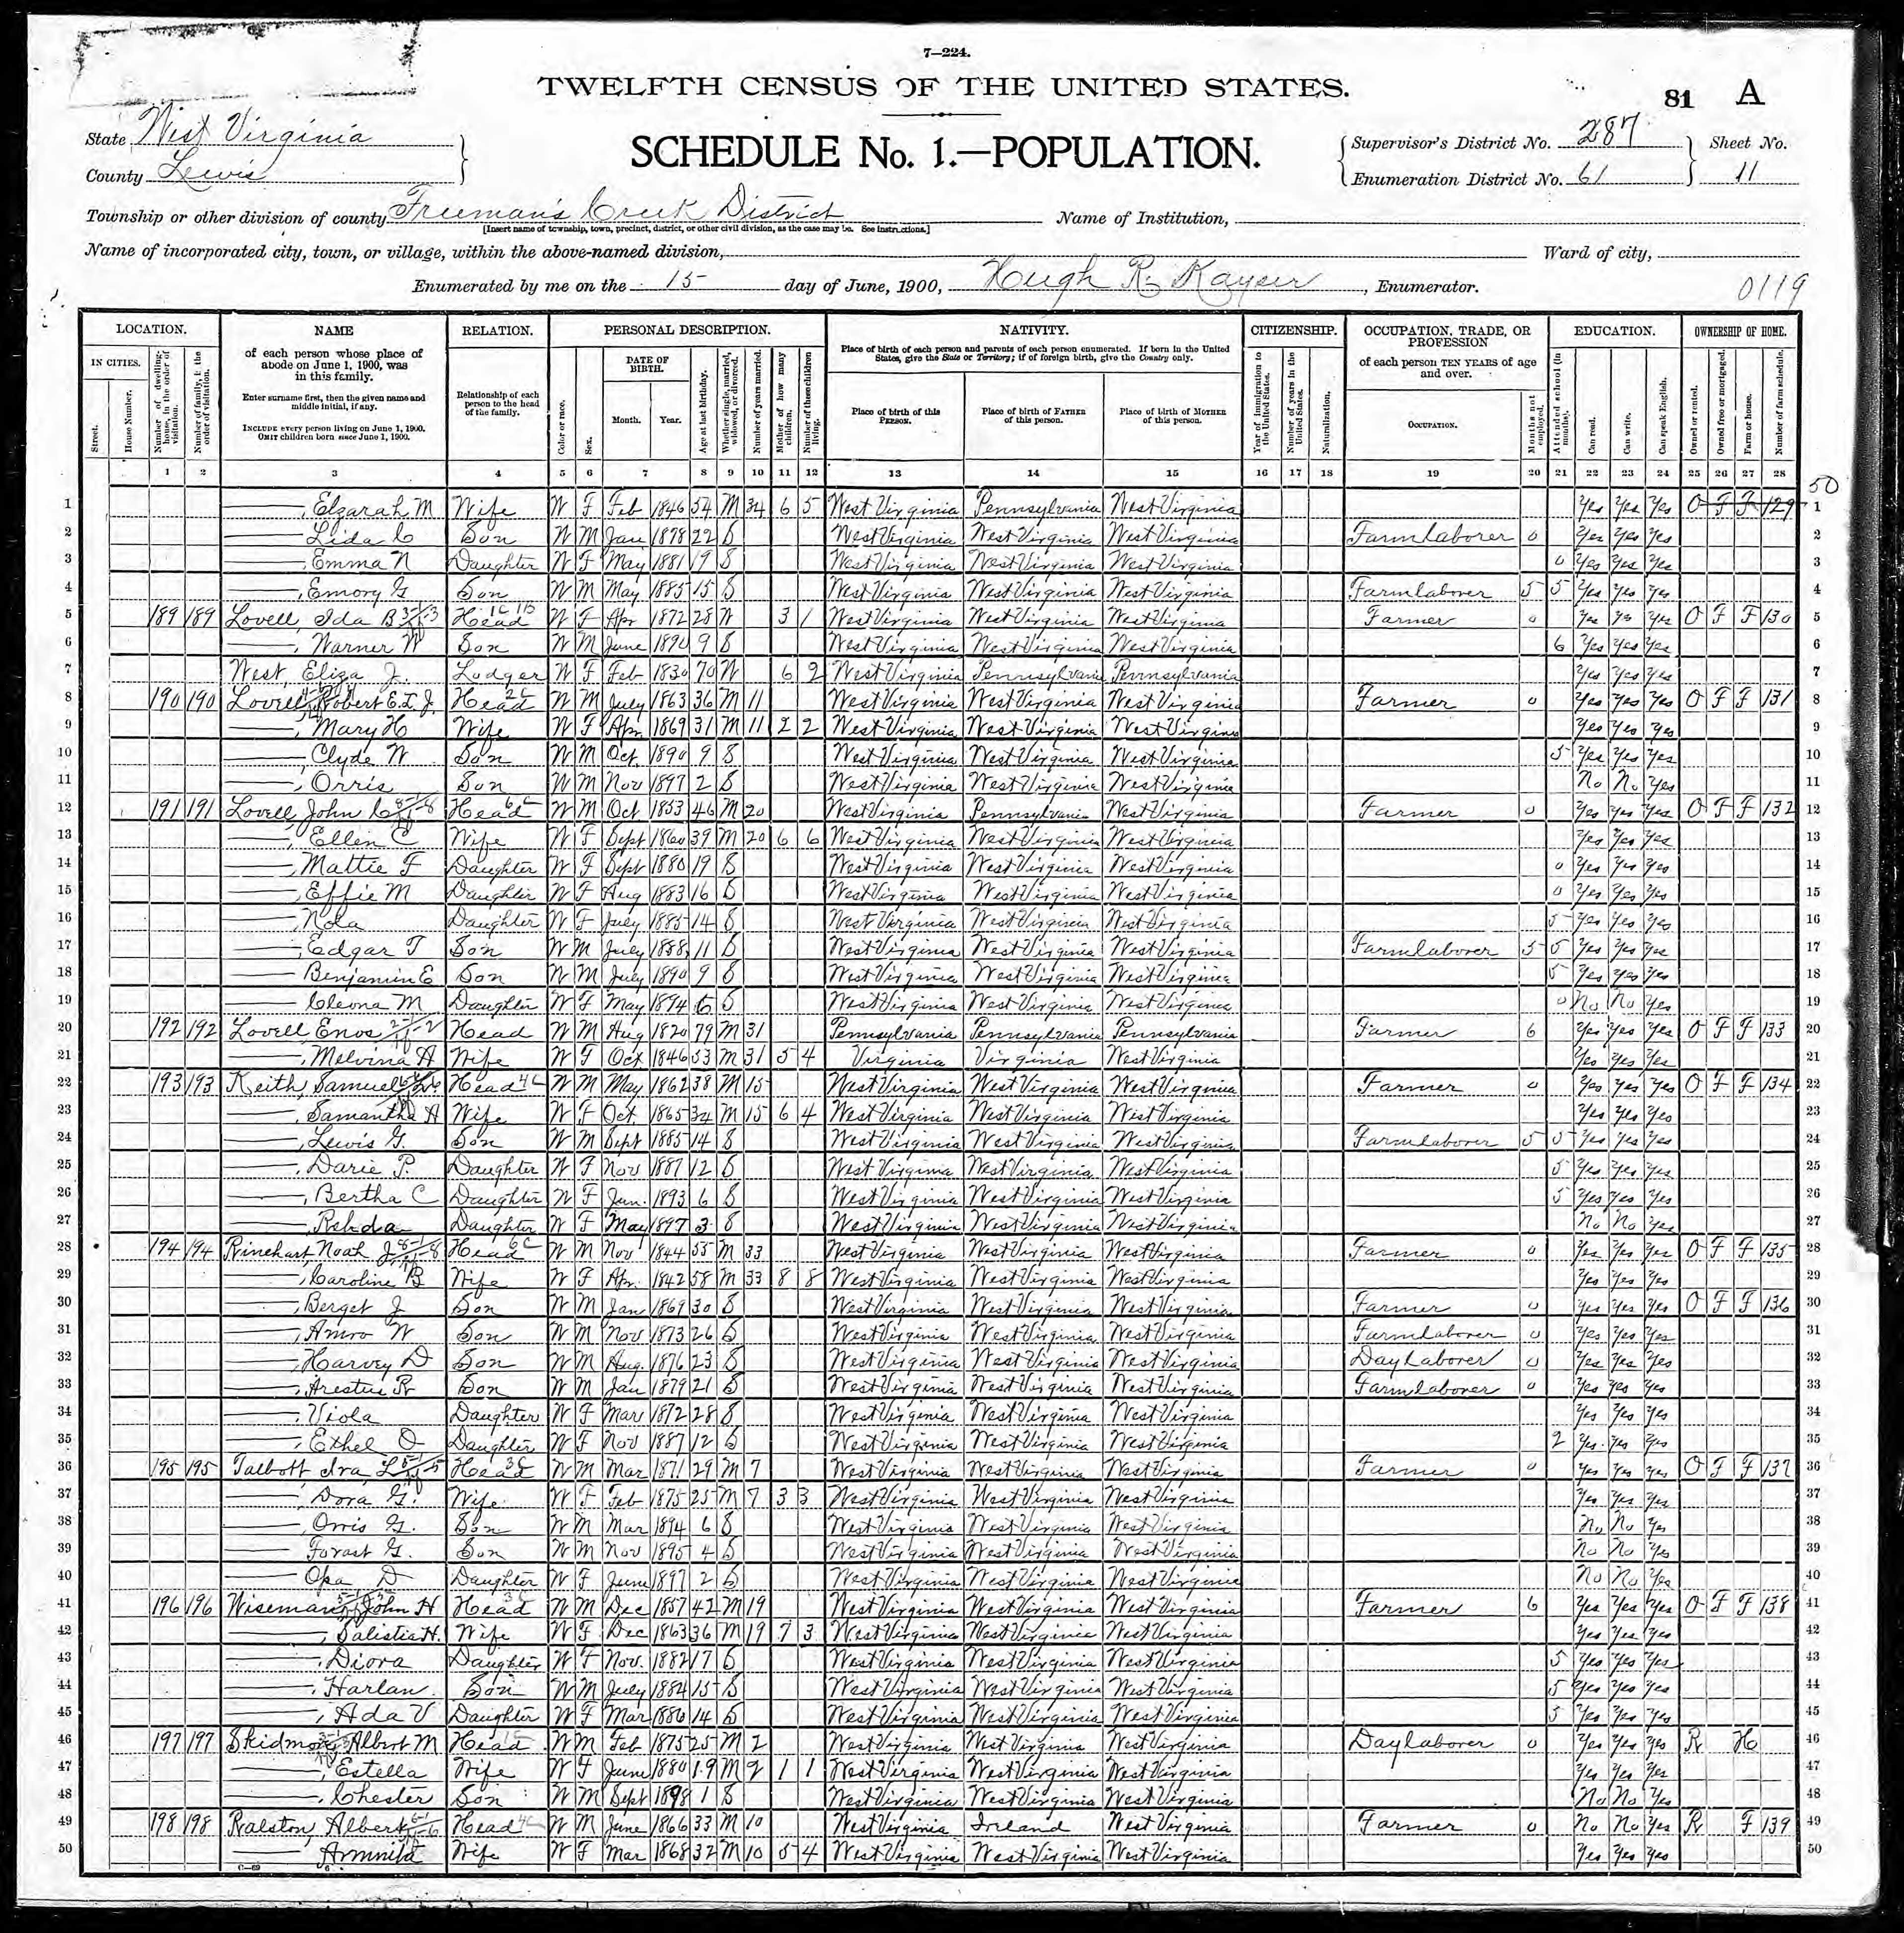 7—224.
TWELFTH CENSUS OF THE UNITED STATES.
81 A
State West Virginia
County Lewis
SCHEDULE No. 1.—POPULATION.
Supervisor's District No. 287
Enumeration District No. 61
Sheet No. 11
Township or other division of county Freeman's Creek District
[Insert name of township, town, precinct, district, or other civil division, as the case may be. See instructions.]
Name of Institution,
Name of incorporated city, town, or village, within the above-named division,
Ward of city,
Enumerated by me on the 15 day of June, 1900, Hugh R. Kayser, Enumerator.
0119
LOCATION. NAME RELATION. PERSONAL DESCRIPTION. NATIVITY. CITIZENSHIP. OCCUPATION, TRADE, OR PROFESSION EDUCATION. OWNERSHIP OF HOME.
IN CITIES.
Street.
House Number.
Number of dwelling-house, in the order of visitation.
Number of family, in the order of visitation.
of each person whose place of abode on June 1, 1900, was in this family.
Enter surname first, then the given name and middle initial, if any.
INCLUDE every person living on June 1, 1900.
OMIT children born since June 1, 1900.
Relationship of each person to the head of the family.
Color or race.
Sex.
DATE OF BIRTH.
Month. Year.
Age at last birthday.
Whether single, married, widowed, or divorced.
Number of years married.
Mother of how many children.
Number of these children living.
Place of birth of each person and parents of each person enumerated. If born in the United States, give the State or Territory; if of foreign birth, give the Country only.
Place of birth of this PERSON.
Place of birth of FATHER of this person.
Place of birth of MOTHER of this person.
Year of immigration to the United States.
Number of years in the United States.
Naturalization.
of each person TEN YEARS of age and over.
OCCUPATION.
Months not employed.
Attended school (in months).
Can read.
Can write.
Can speak English.
Owned or rented.
Owned free or mortgaged.
Farm or house.
Number of farm schedule.
1 2 3 4 5 6 7 8 9 10 11 12 13 14 15 16 17 18 19 20 21 22 23 24 25 26 27 28
50
1 ——, Elzarah M Wife W F Feb 1846 54 M 34 6 5 West Virginia Pennsylvania West Virginia Yes Yes Yes O F F 129 1
2 ——, Lida C Son W M Jan 1878 22 S West Virginia West Virginia West Virginia Farm laborer 0 Yes Yes Yes 2
3 ——, Emma N Daughter W F May 1881 19 S West Virginia West Virginia West Virginia 0 Yes Yes Yes 3
4 ——, Emory G Son W M May 1885 15 S West Virginia West Virginia West Virginia Farm laborer 5 5 Yes Yes Yes 4
5 189 189 Lovell, Ida B Head W F Apr 1872 28 W 3 1 West Virginia West Virginia West Virginia Farmer 0 Yes Yes Yes O F F 130 5
6 ——, Warner W Son W M June 1890 9 S West Virginia West Virginia West Virginia 6 Yes Yes Yes 6
7 West, Eliza J. Lodger W F Feb 1830 70 W 6 2 West Virginia Pennsylvania Pennsylvania Yes Yes Yes 7
8 190 190 Lovell, Robert E. L. J. Head W M July 1863 36 M 11 West Virginia West Virginia West Virginia Farmer 0 Yes Yes Yes O F F 131 8
9 ——, Mary H Wife W F Apr 1869 31 M 11 2 2 West Virginia West Virginia West Virginia Yes Yes Yes 9
10 ——, Clyde W Son W M Oct 1890 9 S West Virginia West Virginia West Virginia 5 Yes Yes Yes 10
11 ——, Orris Son W M Nov 1897 2 S West Virginia West Virginia West Virginia No No Yes 11
12 191 191 Lovell, John C Head W M Oct 1853 46 M 20 West Virginia Pennsylvania West Virginia Farmer 0 Yes Yes Yes O F F 132 12
13 ——, Ellen C Wife W F Sept 1860 39 M 20 6 6 West Virginia West Virginia West Virginia Yes Yes Yes 13
14 ——, Mattie F Daughter W F Sept 1880 19 S West Virginia West Virginia West Virginia 0 Yes Yes Yes 14
15 ——, Effie M Daughter W F Aug 1883 16 S West Virginia West Virginia West Virginia 0 Yes Yes Yes 15
16 ——, Nola Daughter W F July 1885 14 S West Virginia West Virginia West Virginia 5 Yes Yes Yes 16
17 ——, Edgar T Son W M July 1888 11 S West Virginia West Virginia West Virginia Farm laborer 5 5 Yes Yes Yes 17
18 —— Benjamin E Son W M July 1890 9 S West Virginia West Virginia West Virginia 5 Yes Yes Yes 18
19 ——, Cleona M Daughter W F May 1894 6 S West Virginia West Virginia West Virginia 0 No No Yes 19
20 192 192 Lovell, Enos Head W M Aug 1820 79 M 31 Pennsylvania Pennsylvania Pennsylvania Farmer 6 Yes Yes Yes O F F 133 20
21 ——, Melvina A Wife W F Oct 1846 53 M 31 5 4 Virginia Virginia West Virginia Yes Yes Yes 21
22 193 193 Keith, Samuel Head W M May 1862 38 M 15 West Virginia West Virginia West Virginia Farmer 0 Yes Yes Yes O F F 134 22
23 ——, Samantha A Wife W F Oct. 1865 34 M 15 6 4 West Virginia West Virginia West Virginia Yes Yes Yes 23
24 ——, Lewis G. Son W M Sept 1885 14 S West Virginia West Virginia West Virginia Farm laborer 5 5 Yes Yes Yes 24
25 ——, Darie P. Daughter W F Nov 1887 12 S West Virginia West Virginia West Virginia 5 Yes Yes Yes 25
26 ——, Bertha C Daughter W F Jun. 1893 6 S West Virginia West Virginia West Virginia 5 Yes Yes Yes 26
27 ——, Daughter W F May 1897 3 S West Virginia West Virginia West Virginia No No Yes 27
28 194 194 Rinehart, Noah J Head W M Nov 1844 55 M 33 West Virginia West Virginia West Virginia Farmer 0 Yes Yes Yes O F F 135 28
29 ——, Caroline B Wife W F Apr. 1842 58 M 33 8 8 West Virginia West Virginia West Virginia Yes Yes Yes 29
30 ——, Berget J Son W M Jan 1869 30 S West Virginia West Virginia West Virginia Farmer 0 Yes Yes Yes O F F 136 30
31 ——, Amro W Son W M Nov 1873 26 S West Virginia West Virginia West Virginia Farm laborer 0 Yes Yes Yes 31
32 ——, Harvey D Son W M Aug. 1876 23 S West Virginia West Virginia West Virginia Day laborer 0 Yes Yes Yes 32
33 ——, R Son W M Jan 1879 21 S West Virginia West Virginia West Virginia Farm laborer 0 Yes Yes Yes 33
34 ——, Viola Daughter W F Mar 1872 28 S West Virginia West Virginia West Virginia Yes Yes Yes 34
35 ——, Ethel O Daughter W F Nov 1887 12 S West Virginia West Virginia West Virginia 2 Yes Yes Yes 35
36 195 195 Talbott, Ira L Head W M Mar 1871 29 M 7 West Virginia West Virginia West Virginia Farmer 0 Yes Yes Yes O F F 137 36
37 ——, Dora G. Wife W F Feb 1875 25 M 7 3 3 West Virginia West Virginia West Virginia Yes Yes Yes 37
38 ——, Orris G. Son W M Mar 1894 6 S West Virginia West Virginia West Virginia No No Yes 38
39 ——, Forast G. Son W M Nov 1895 4 S West Virginia West Virginia West Virginia No No Yes 39
40 —— Opa D Daughter W F June 1897 2 S West Virginia West Virginia West Virginia No No Yes 40
41 196 196 Wiseman, John H Head W M Dec 1857 42 M 19 West Virginia West Virginia West Virginia Farmer 6 Yes Yes Yes O F F 138 41
42 ——, Salistia H. Wife W F Dec 1863 36 M 19 7 3 West Virginia West Virginia West Virginia Yes Yes Yes 42
43 ——, Diora Daughter W F Nov. 1882 17 S West Virginia West Virginia West Virginia 5 Yes Yes Yes 43
44 ——, Harlan Son W M July 1884 15 S West Virginia West Virginia West Virginia 5 Yes Yes Yes 44
45 ——, Ada V Daughter W F Mar 1886 14 S West Virginia West Virginia West Virginia 5 Yes Yes Yes 45
46 197 197 Skidmore, Albert M Head W M Feb 1875 25 M 2 West Virginia West Virginia West Virginia Day laborer 0 Yes Yes Yes R H 46
47 ——, Estella Wife W F June 1880 19 M 2 1 1 West Virginia West Virginia West Virginia Yes Yes Yes 47
48 ——, Chester Son W M Sept 1898 1 S West Virginia West Virginia West Virginia No No Yes 48
49 198 198 Ralston, Albert Head W M June 1866 33 M 10 West Virginia Ireland West Virginia Farmer 0 No No Yes R F 139 49
50 ——, Aminita Wife W F Mar 1868 32 M 10 5 4 West Virginia West Virginia West Virginia Yes Yes Yes 50